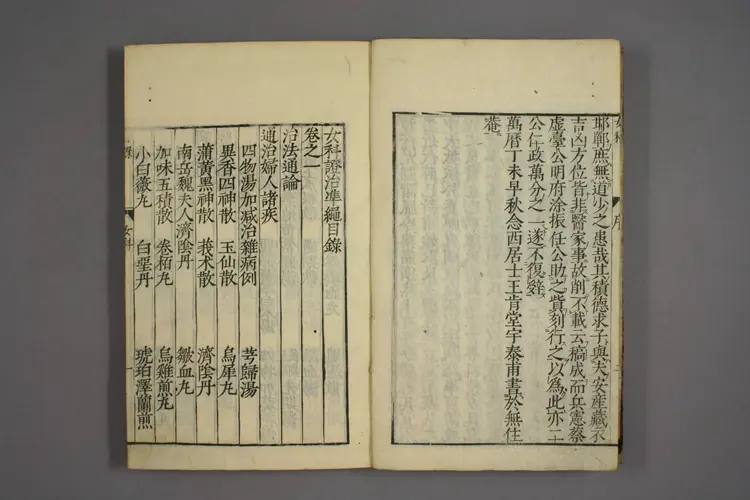 耶鄲庶無道少之患哉其積德求子與夫安産藏衣
吉凶方位皆非醫家事故削不載云稿成而兵憲蔡
虛臺公明府涂振任公助之貲刻行之以為此亦二
公仁政萬分之一遂不復辤
萬曆丁未早秋念西居士王肯堂宇泰甫書於無住
菴
女科
序
女科證治準繩目錄
卷之一
治法通論
通治婦人諸疾
四物湯加減治雜病例 芎歸湯
異香四神散 玉仙散 烏犀丸
蒲黃黑神散 莪术散 濟陰丹
南岳魏夫人濟陰丹 皺血丸
加味五積散 卷栢丸 烏雞煎丸
小白薇丸 白堊丹 琥珀澤蘭煎
女科
一